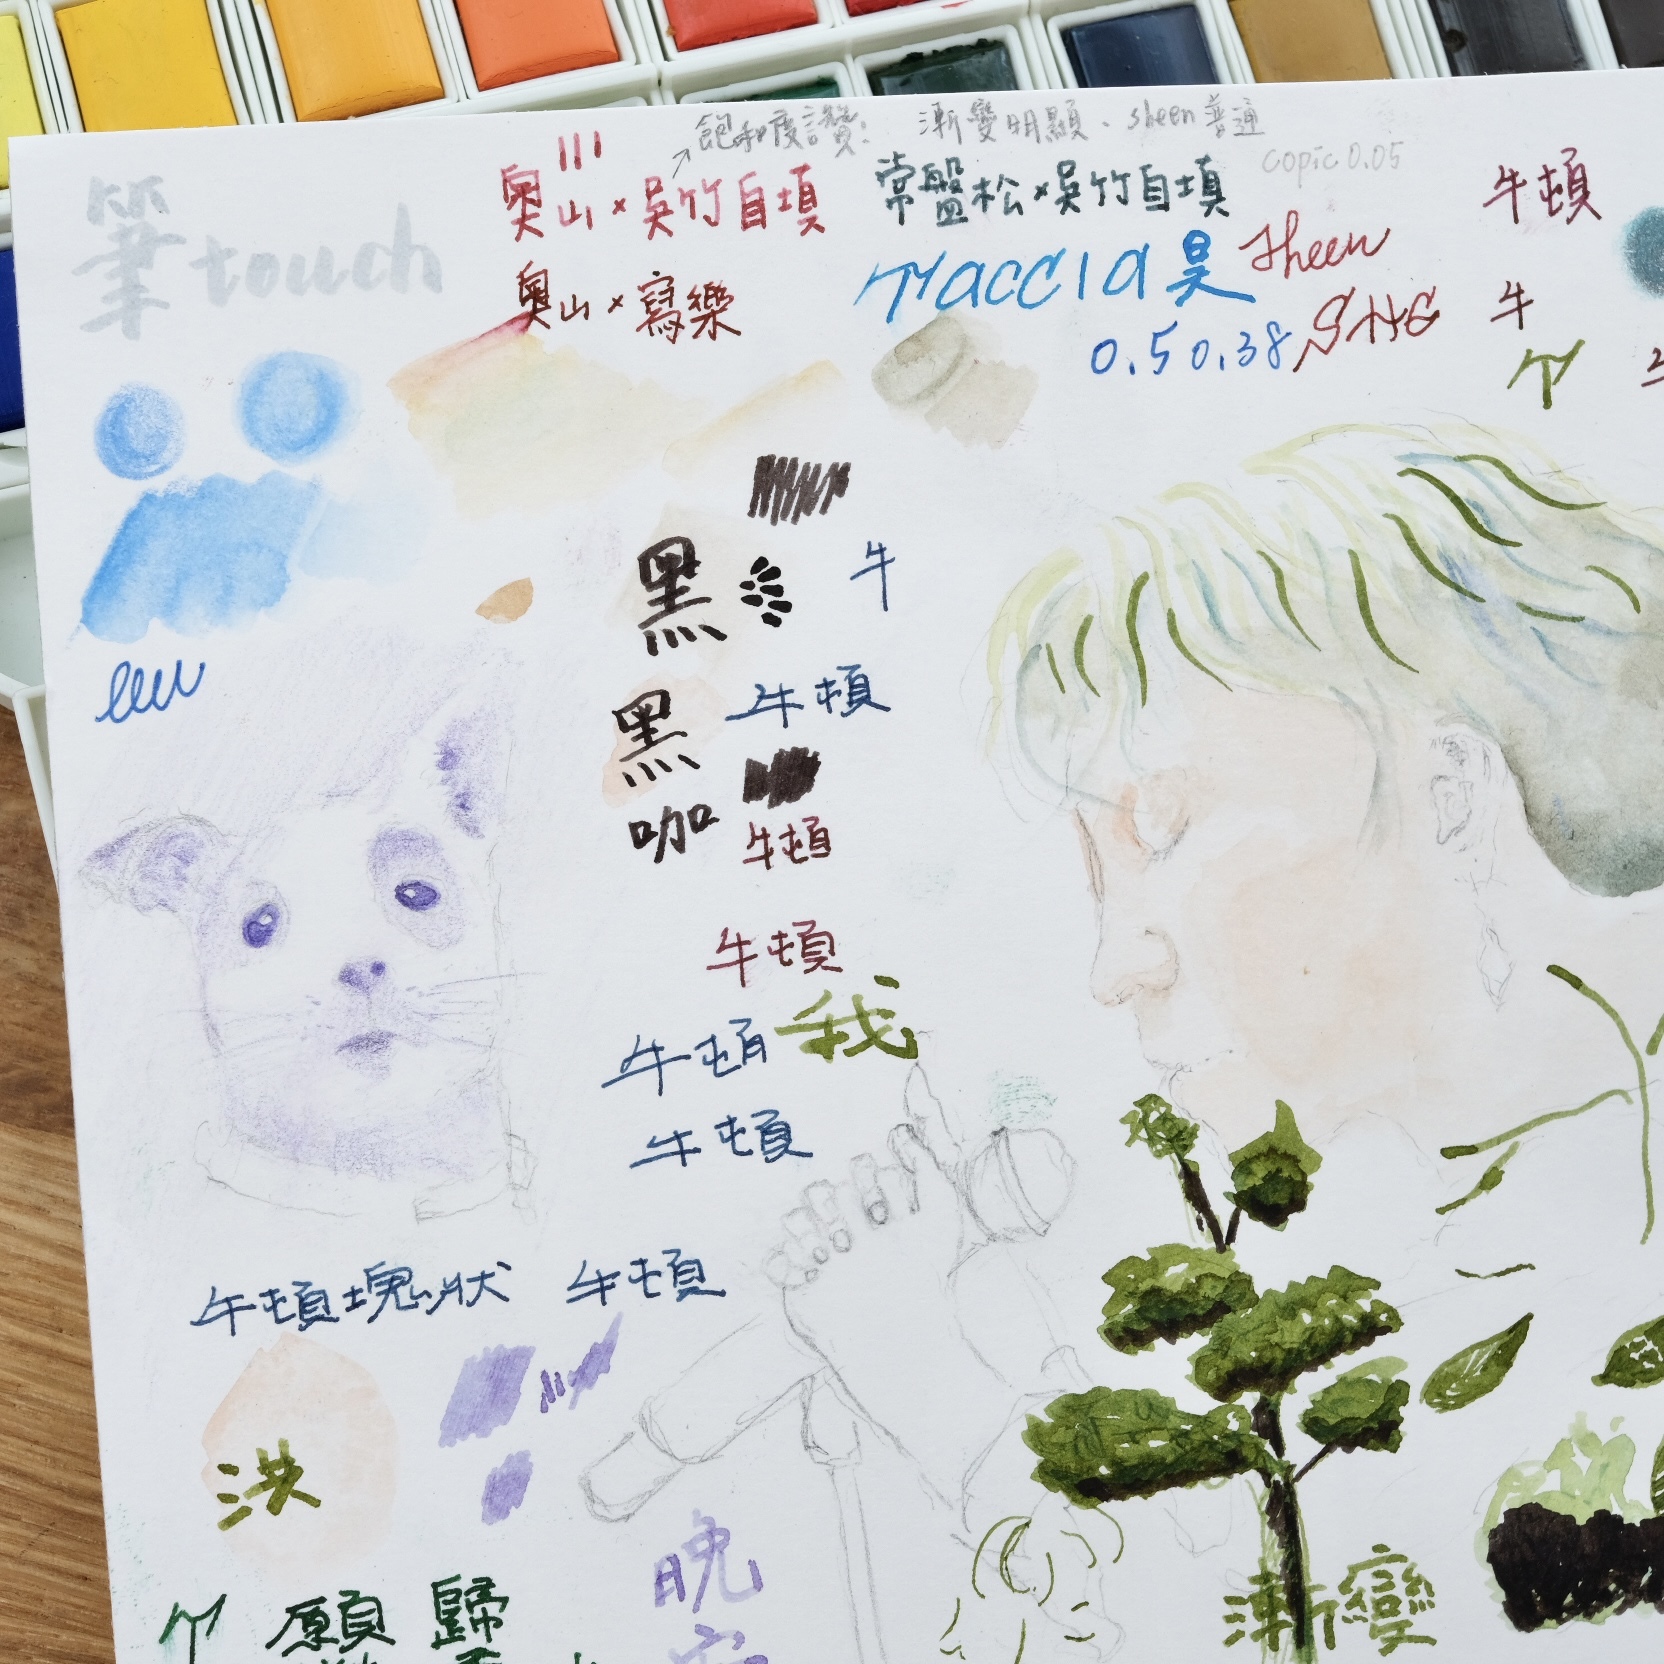 飽和度讚! 漸變明顯、sheen普通
copic 0.05
筆touch
奧山×吳竹自填
常盤松×吳竹自填
牛頓
奧山×寫樂
Taccia 吴
Sheen
0.5 0.38
牛
黑
牛
黑
牛頓
咖
牛頓
牛頓
牛頓
我
牛頓
牛頓塊狀
牛頓
洪
晚
願 歸
漸變